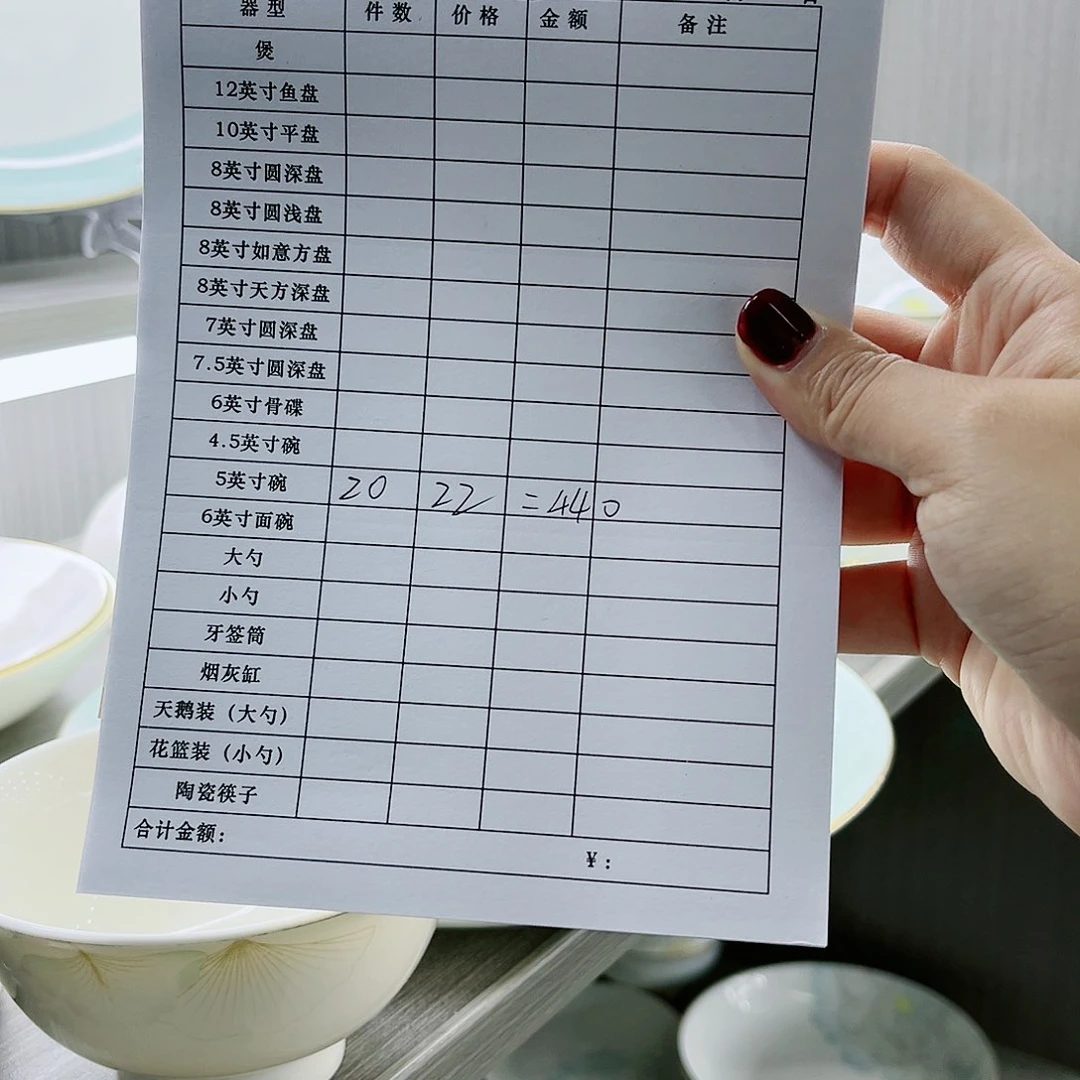 器型 件数 价格 金额 备注
煲
12英寸鱼盘
10英寸平盘
8英寸圆深盘
8英寸圆浅盘
8英寸如意方盘
8英寸天方深盘
7英寸圆深盘
7.5英寸圆深盘
6英寸骨碟
4.5英寸碗
5英寸碗 20 22 =440
6英寸面碗
大勺
小勺
牙签筒
烟灰缸
天鹅装（大勺）
花篮装（小勺）
陶瓷筷子
合计金额: ¥: